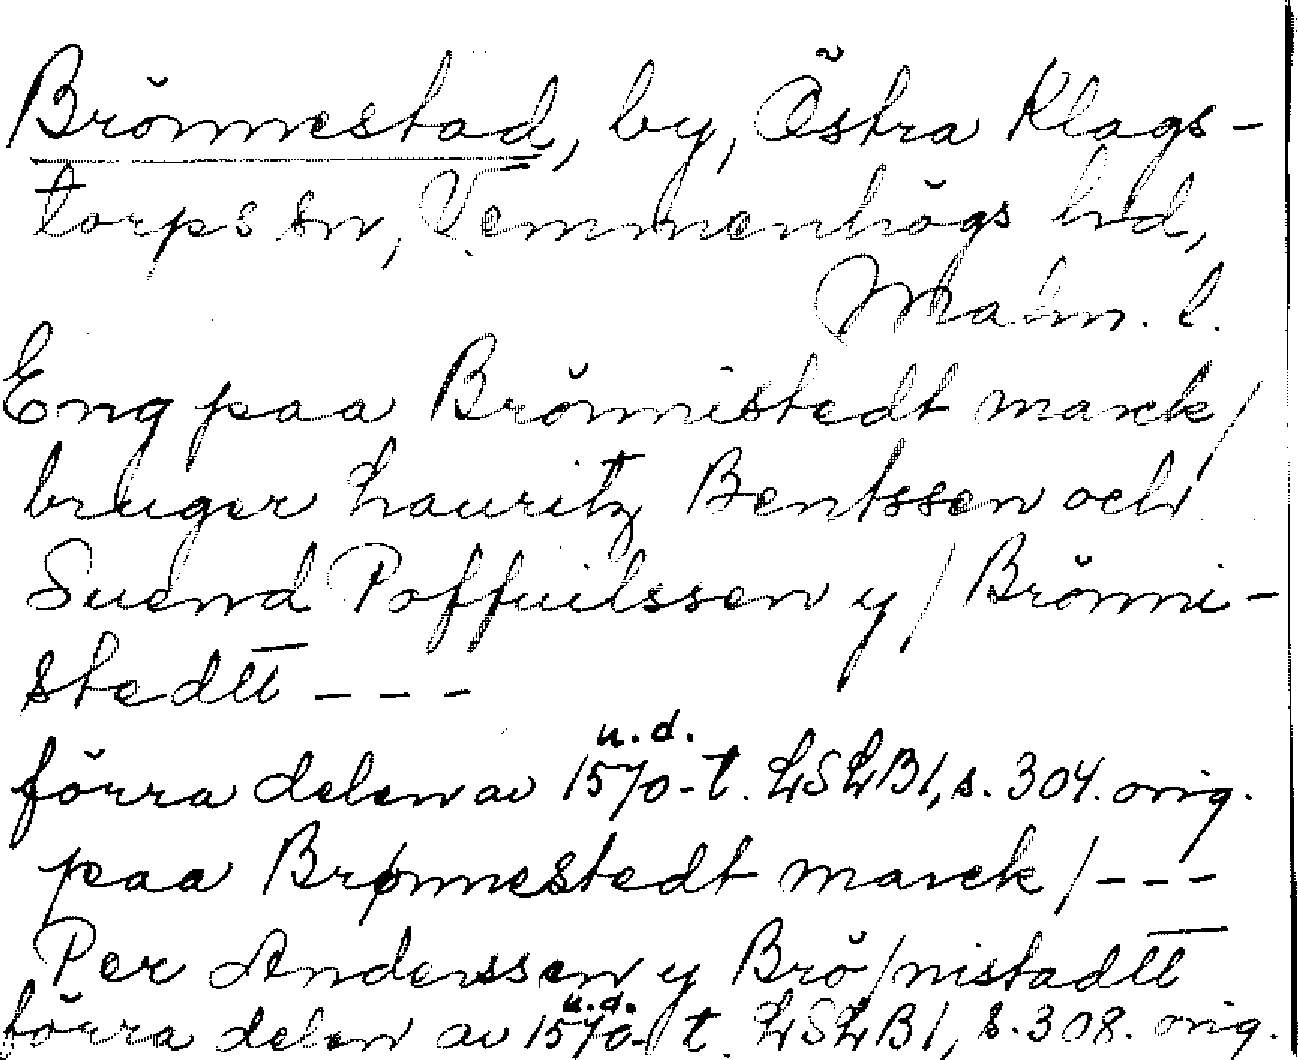 Brönnestad, by, Östra Klags-
torps sn, Vemmenhögs hd,
Malm. l.
Eng paa Brönnistedt marck/
bruger Lauritz Bentssen och
Suend Poffuilssen y/Brönni-
stedtt - - -
u.d.
förra delen av 1570-t. LSLB1, s. 304. orig.
paa Brønnestedt marck/- - -
Per Anderssen y Brö/nistadtt
u.d.
förra delen av 1570-t. LSLB1, s. 308. orig.